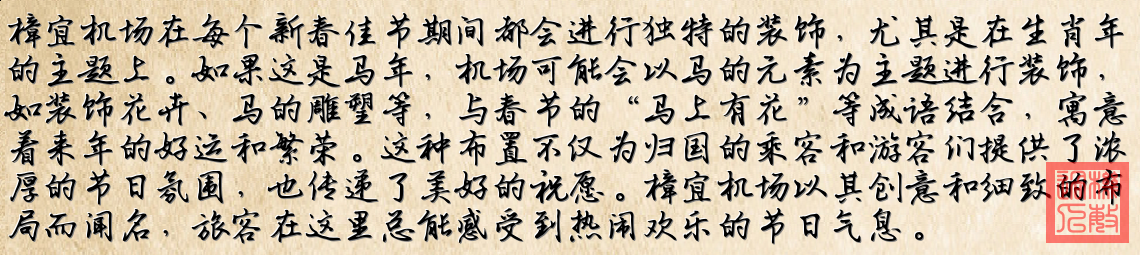 樟宜机场在每个新春佳节期间都会进行独特的装饰，尤其是在生肖年
的主题上。如果这是马年，机场可能会以马的元素为主题进行装饰，
如装饰花卉、马的雕塑等，与春节的“马上有花”等成语结合，寓意
着来年的好运和繁荣。这种布置不仅为归国的乘客和游客们提供了浓
厚的节日氛围，也传递了美好的祝愿。樟宜机场以其创意和细致的布
局而闻名，旅客在这里总能感受到热闹欢乐的节日气息。